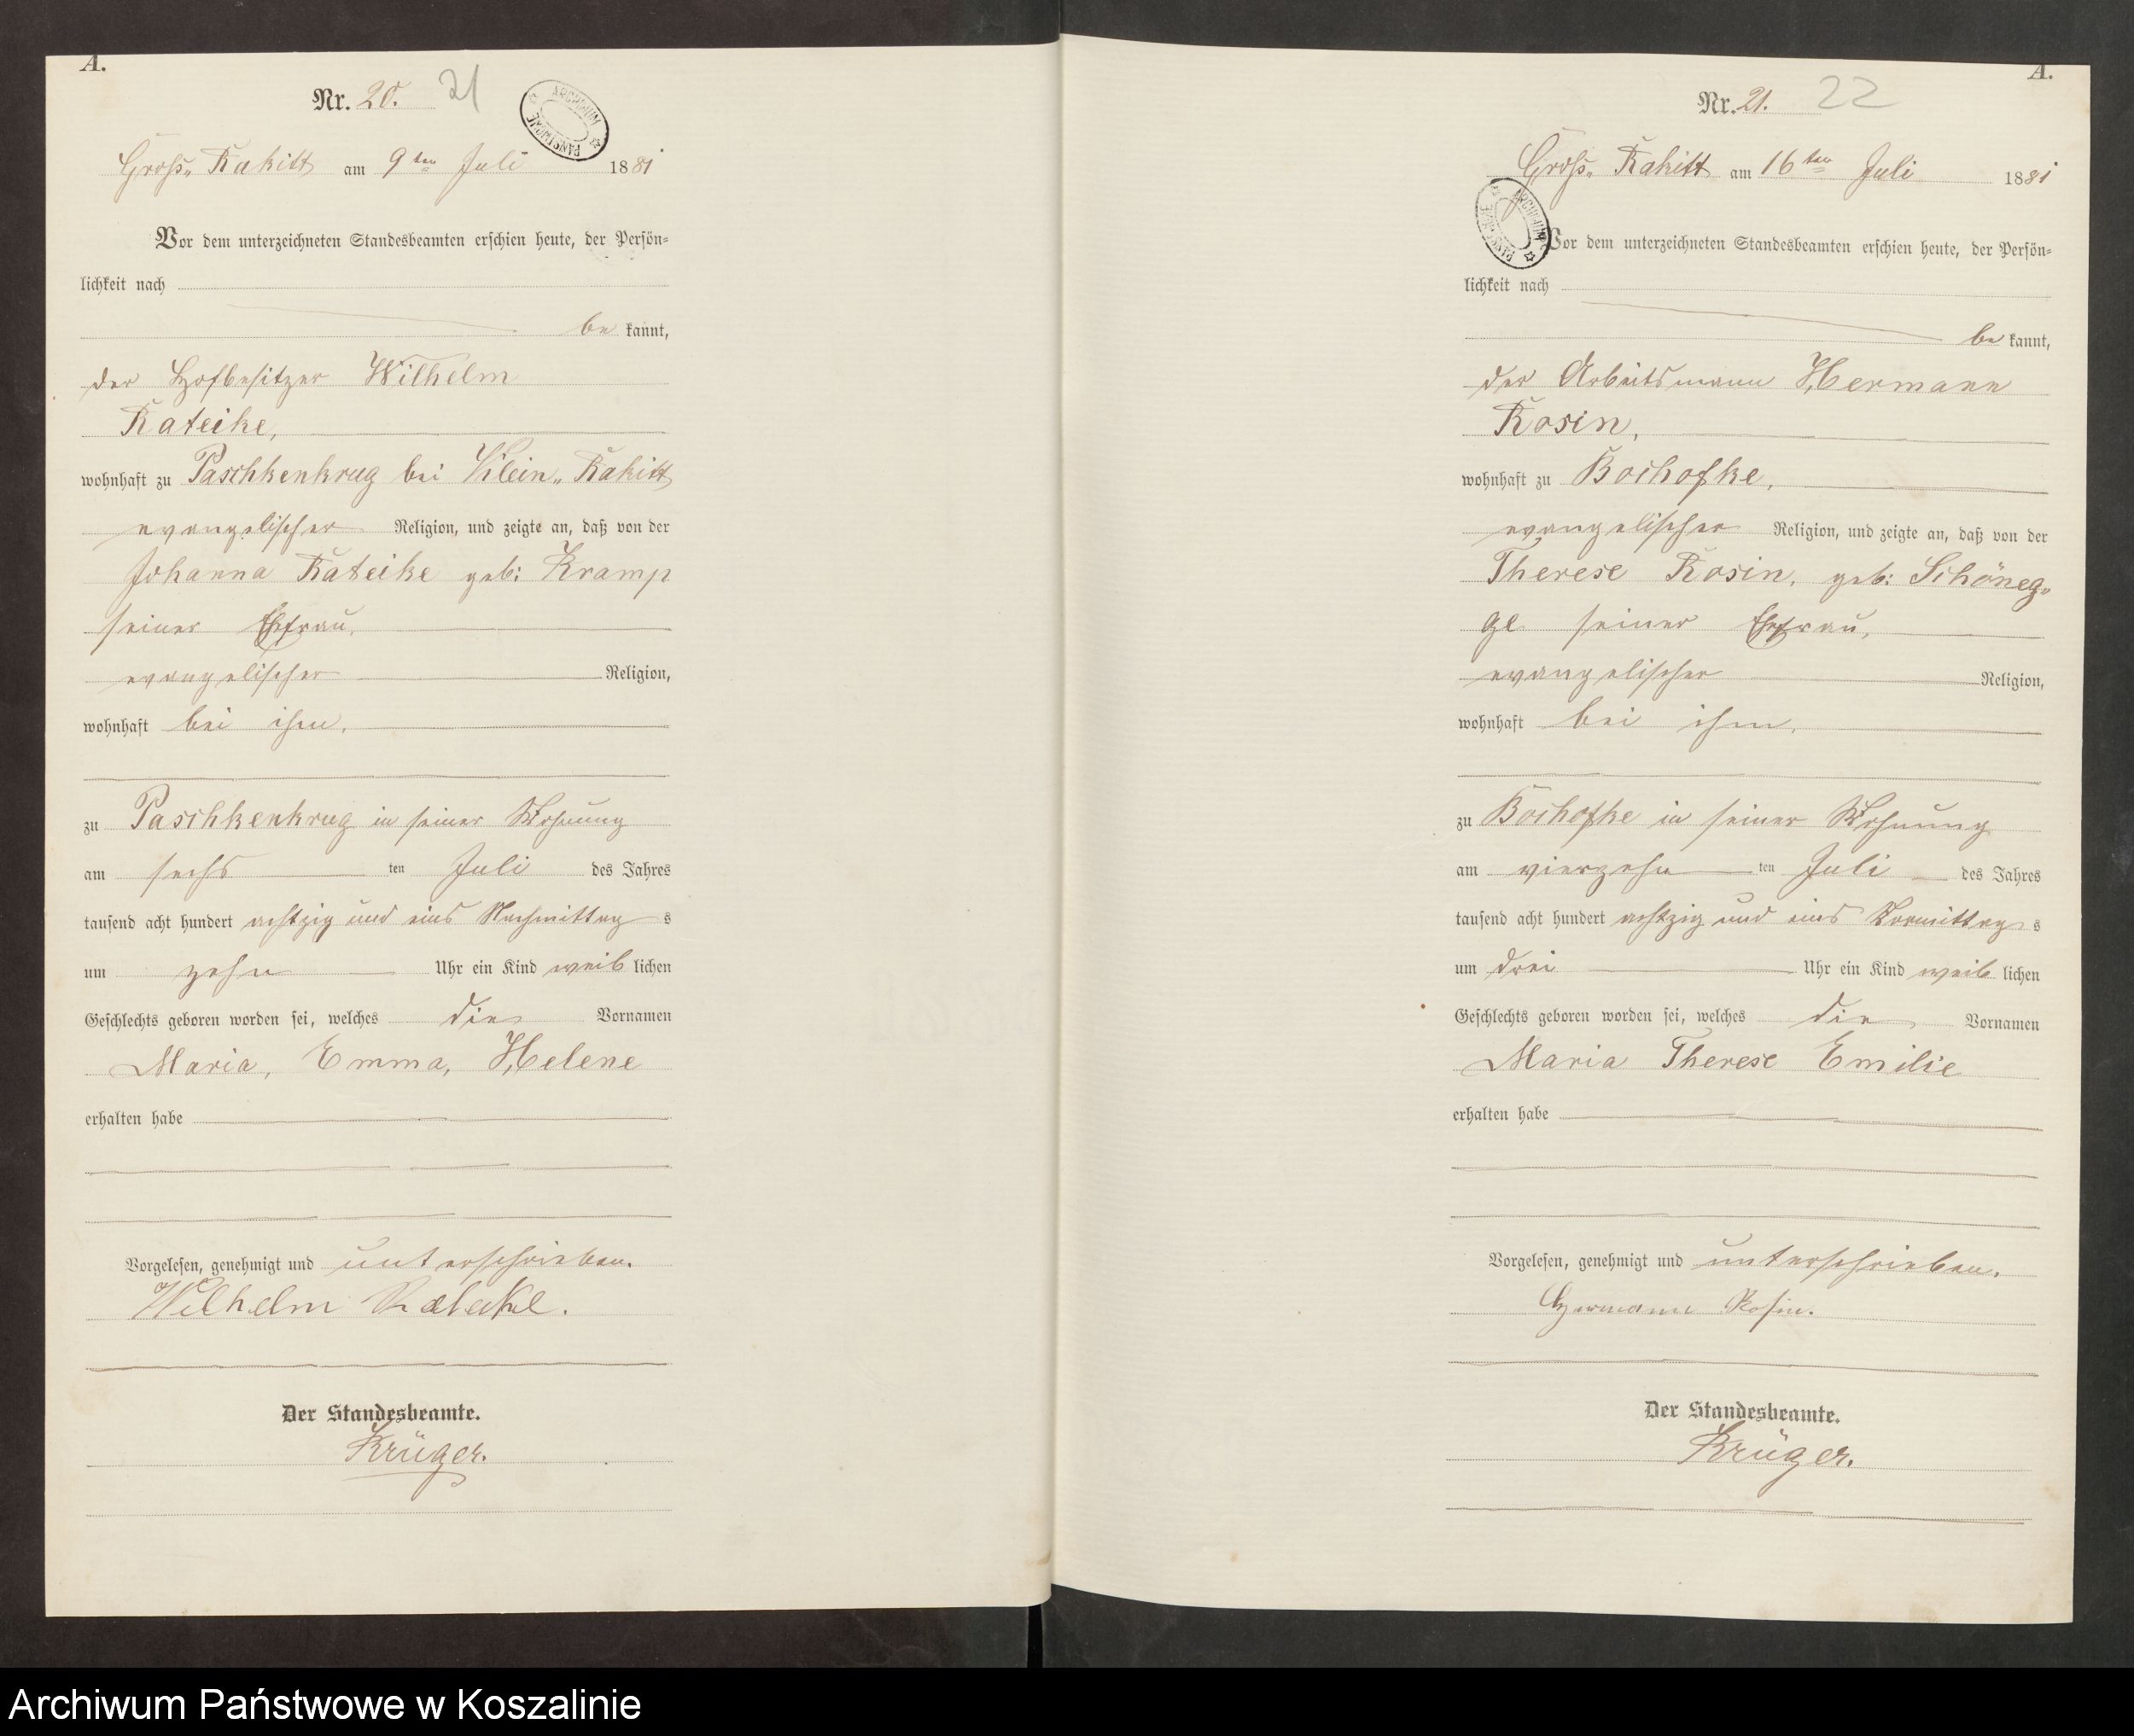 A.
Nr. 20. 21
ARCHIWUM PAŃSTWOWE
Gross„ Rakitt am 9ten Juli 1881
Vor dem unterzeichneten Standesbeamten erschien heute, der Persön=
lichkeit nach
be kannt,
der Hofbesitzer Wilhelm
Rateike,
wohnhaft zu Paschkenkrug bei Klein„ Rakitt
evangelischer Religion, und zeigte an, daß von der
Johanna Rateike geb: Kramp
seiner Ehefrau,
evangelischer Religion,
wohnhaft bei ihm,
zu Paschkenkrug in seiner Wohnung
am sechs ten Juli des Jahres
tausend acht hundert achtzig und eins Nachmittag s
um zehn Uhr ein Kind weib lichen
Geschlechts geboren worden sei, welches die Vornamen
Maria, Emma, Helene
erhalten habe
Vorgelesen, genehmigt und unterschrieben.
Wilhelm
Der Standesbeamte.
Krüger.
A.
Nr. 21. 22
Gross„ Rakitt am 16ten Juli 1881
ARCHIWUM PAŃSTWOWE
Vor dem unterzeichneten Standesbeamten erschien heute, der Persön=
lichkeit nach
be kannt,
der Arbeitsmann Hermann
Rosin,
wohnhaft zu Bochofke,
evangelischer Religion, und zeigte an, daß von der
Therese Rosin, geb: Schöneg„
ge seiner Ehefrau,
evangelischer Religion,
wohnhaft bei ihm,
zu Bochofke in seiner Wohnung
am vierzehn ten Juli des Jahres
tausend acht hundert achtzig und eins Vormittag s
um drei Uhr ein Kind weib lichen
Geschlechts geboren worden sei, welches die Vornamen
Maria Therese Emilie
erhalten habe
Vorgelesen, genehmigt und unterschrieben.
Hermann Rosin.
Der Standesbeamte.
Krüger.
Archiwum Państwowe w Koszalinie